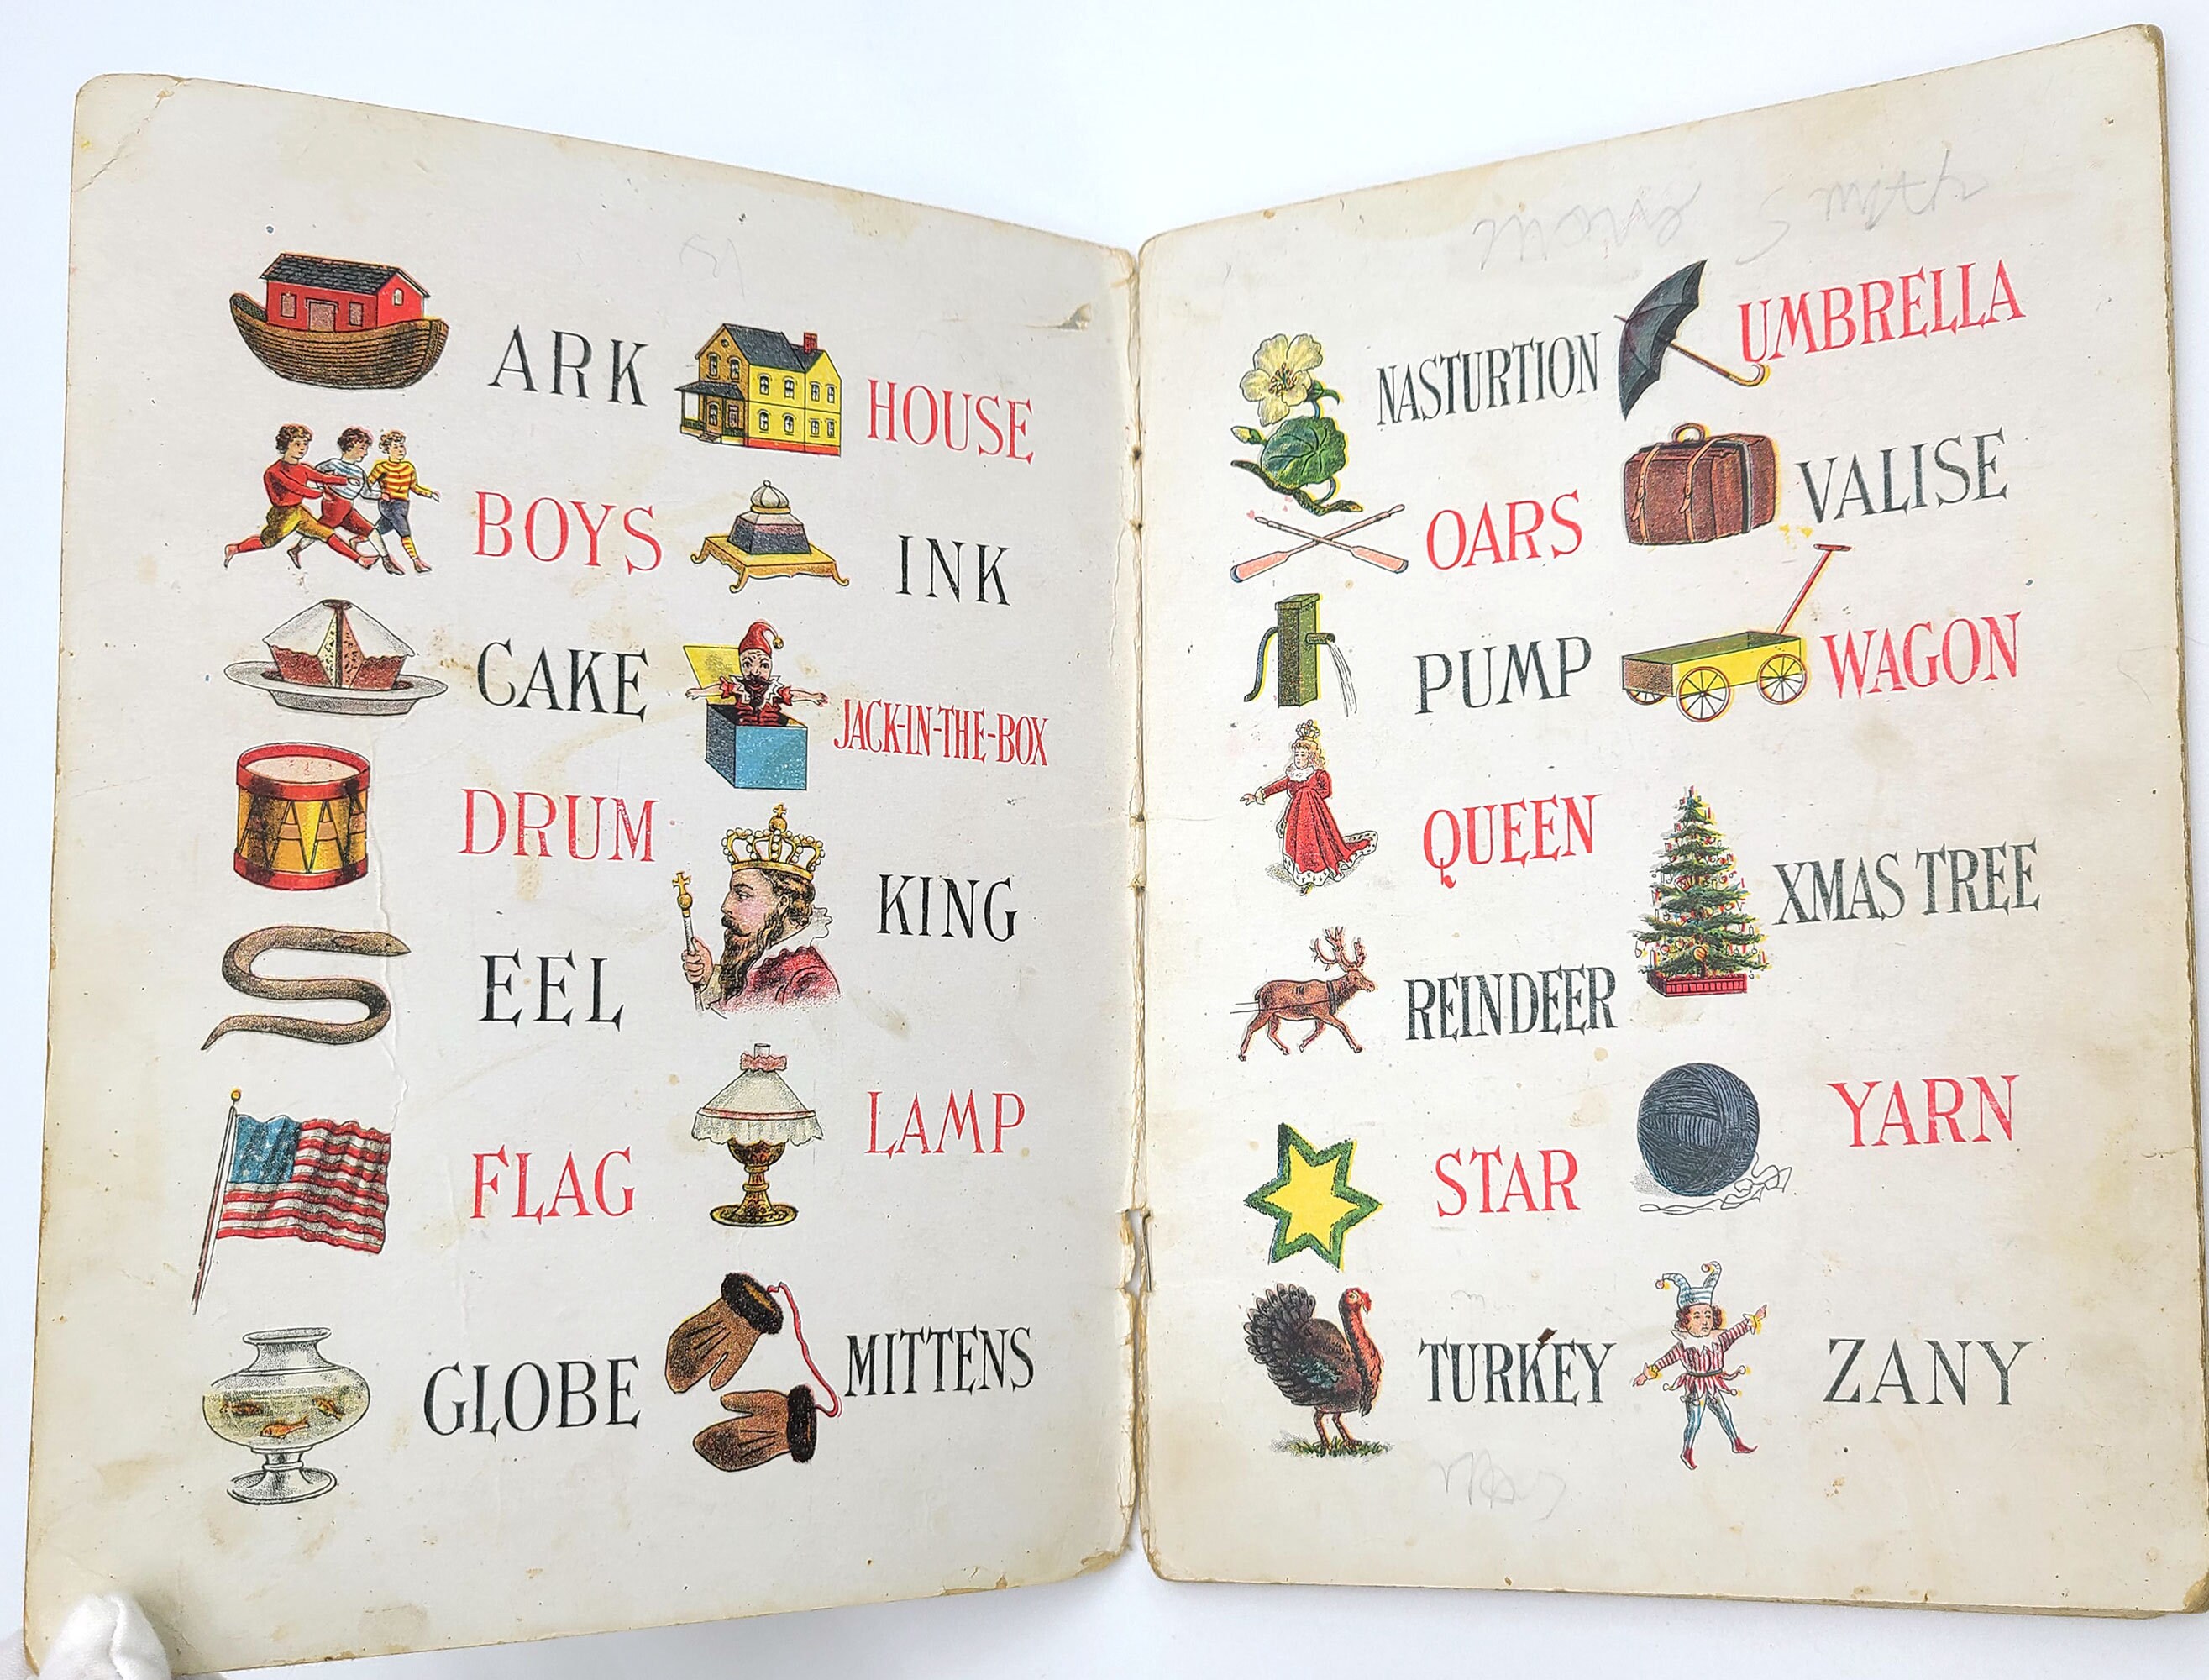 ARK
BOYS
CAKE
DRUM
EEL
FLAG
GLOBE
HOUSE
INK
JACK-IN-THE-BOX
KING
LAMP
MITTENS
Smyth
NASTURTION
OARS
PUMP
QUEEN
REINDEER
STAR
TURKEY
UMBRELLA
VALISE
WAGON
XMAS TREE
YARN
ZANY